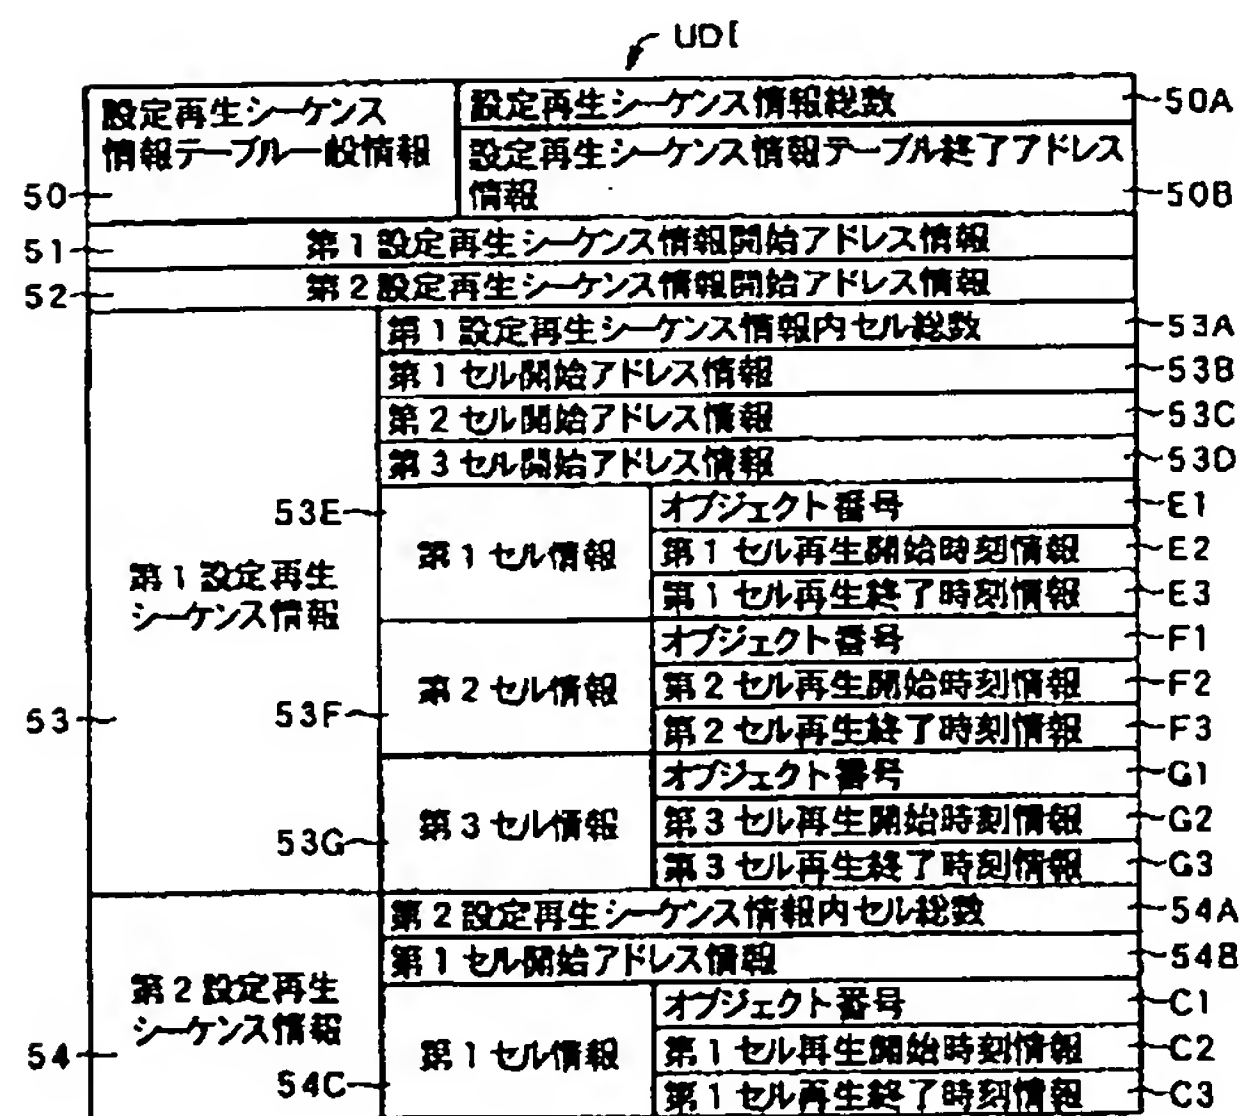 UDI
設定再生シーケンス
情報テーブル一般情報
50
設定再生シーケンス情報総数
50A
設定再生シーケンス情報テーブル終了アドレス
情報
50B
51
第1設定再生シーケンス情報開始アドレス情報
52
第2設定再生シーケンス情報開始アドレス情報
第1設定再生
シーケンス情報
53
第1設定再生シーケンス情報内セル総数
53A
第1セル開始アドレス情報
53B
第2セル開始アドレス情報
53C
第3セル開始アドレス情報
53D
53E
第1セル情報
オブジェクト番号
E1
第1セル再生開始時刻情報
E2
第1セル再生終了時刻情報
E3
第2セル情報
53F
オブジェクト番号
F1
第2セル再生開始時刻情報
F2
第2セル再生終了時刻情報
F3
第3セル情報
53G
オブジェクト番号
G1
第3セル再生開始時刻情報
G2
第3セル再生終了時刻情報
G3
第2設定再生
シーケンス情報
54
第2設定再生シーケンス情報内セル総数
54A
第1セル開始アドレス情報
54B
第1セル情報
54C
オブジェクト番号
C1
第1セル再生開始時刻情報
C2
第1セル再生終了時刻情報
C3